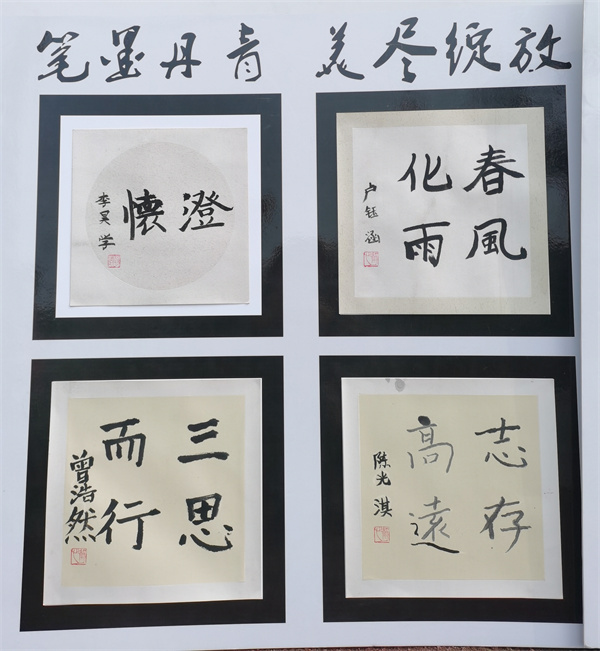 笔墨丹青 美尽绽放
澄懷
李昊学
春風
化雨
卢钰涵
三思
而行
曾浩然
志存
高遠
陈光淇